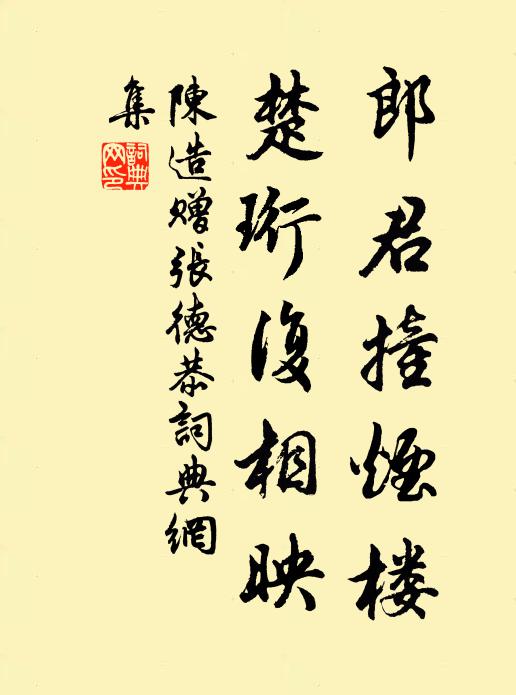 郎君撞煙楼
楚珩復相映
陳造贈張德恭詞典網
集
詞典网印